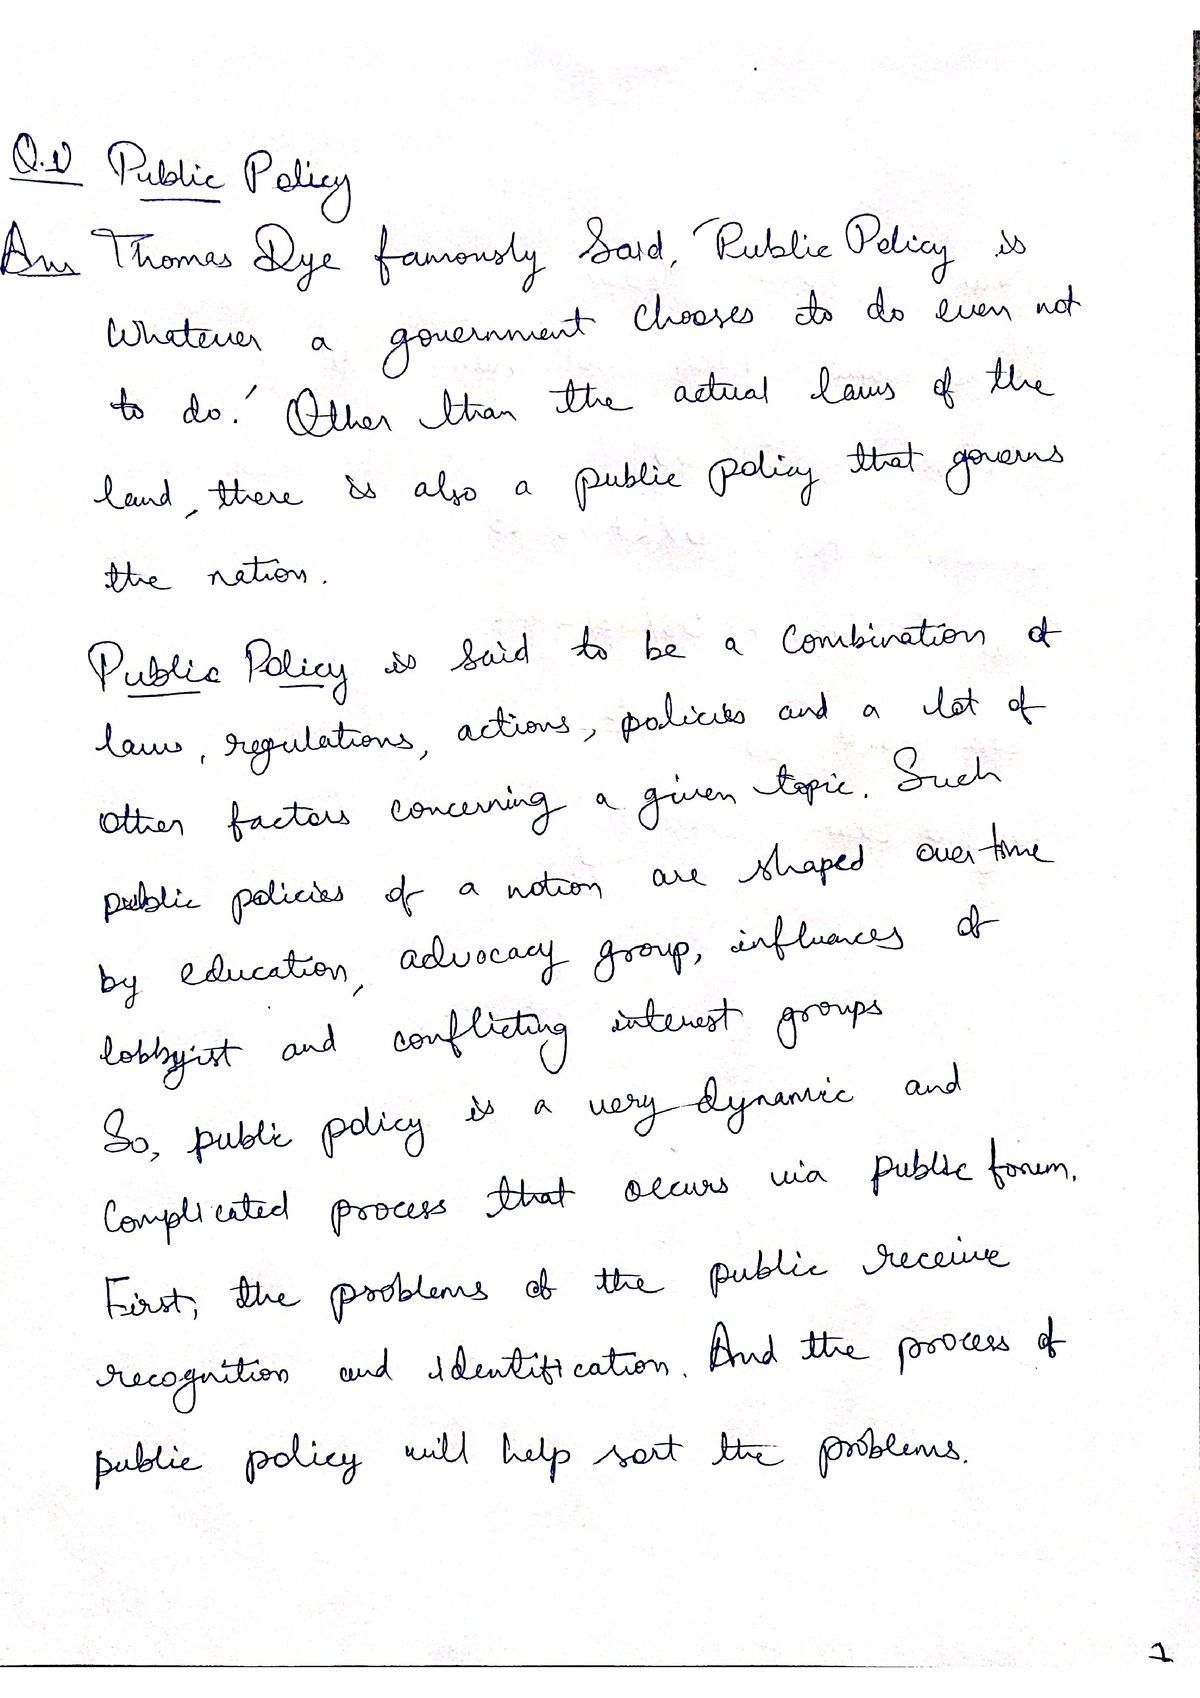 Q.1) Public Policy
Ans Thomas Dye famously Said, "Public Policy is
Whatever a government chooses to do even not
to do.' Other than the actual laws of the
land, there is also a public policy that governs
the nation.
Public Policy is said to be a combination of
laws, regulations, actions, policies and a lot of
other factors concerning a given topic. Such
public policies of a nation are shaped over time
by education, advocacy group, influences of
lobbyist and conflicting interest groups
So, public policy is a very dynamic and
Complicated process that occurs via public forum.
First, the problems of the public receive
recognition and identification. And the process of
public policy will help sort the problems.
1